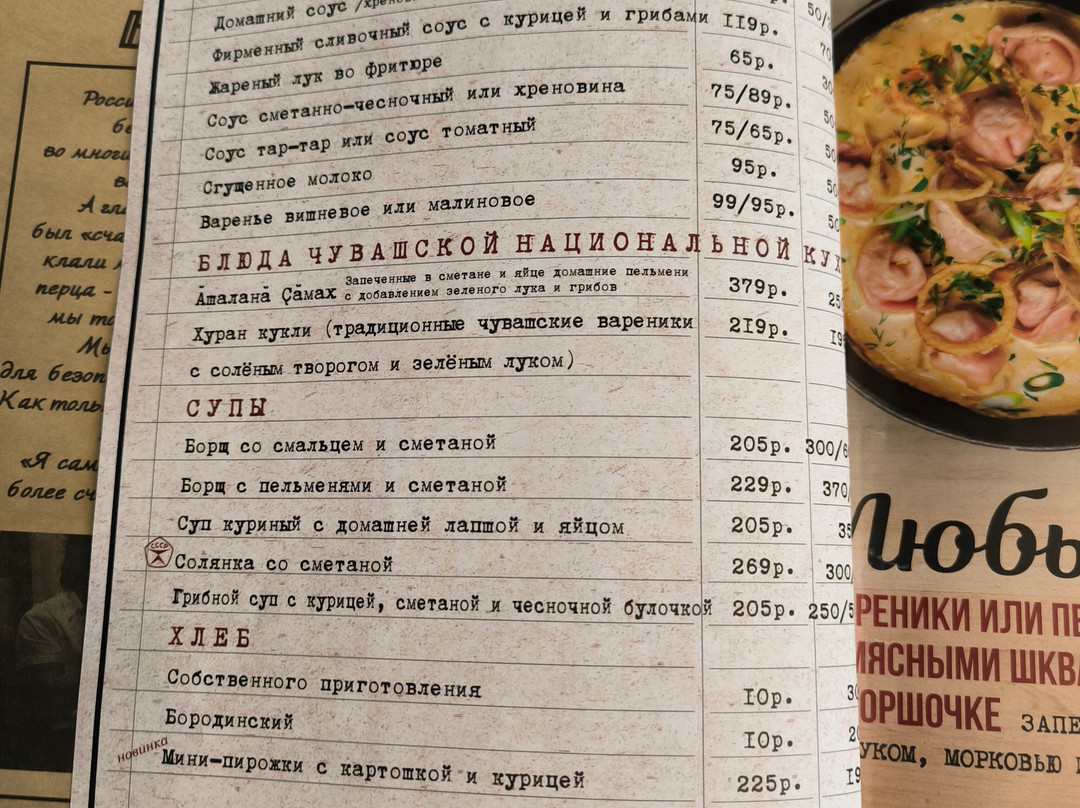 Домашний соус
Фирменный сливочный соус с курицей и грибами 119р.
Жареный лук во фритюре 65р.
Соус сметанно-чесночный или хреновина 75/89р.
Соус тар-тар или соус томатный 75/65р.
Сгущенное молоко 95р.
Варенье вишневое или малиновое 99/95р.
БЛЮДА ЧУВАШСКОЙ НАЦИОНАЛЬНОЙ
Ăшаланă Çăмах Запеченные в сметане и яйце домашние пельмени 379р.
с добавлением зеленого лука и грибов
Хуран кукли (традиционные чувашские вареники 219р.
с солёным творогом и зелёным луком)
СУПЫ
Борщ со смальцем и сметаной 205р.
Борщ с пельменями и сметаной 229р. 370/
Суп куриный с домашней лапшой и яйцом 205р.
СССР
Солянка со сметаной 269р. 300/
Грибной суп с курицей, сметаной и чесночной булочкой 205р. 250/5
ХЛЕБ
Собственного приготовления 10р.
Бородинский 10р.
новинка
Мини-пирожки с картошкой и курицей 225р.
во
А
был
клали
перца -
мы
для
Как
«Я сам
более
ИЛИ